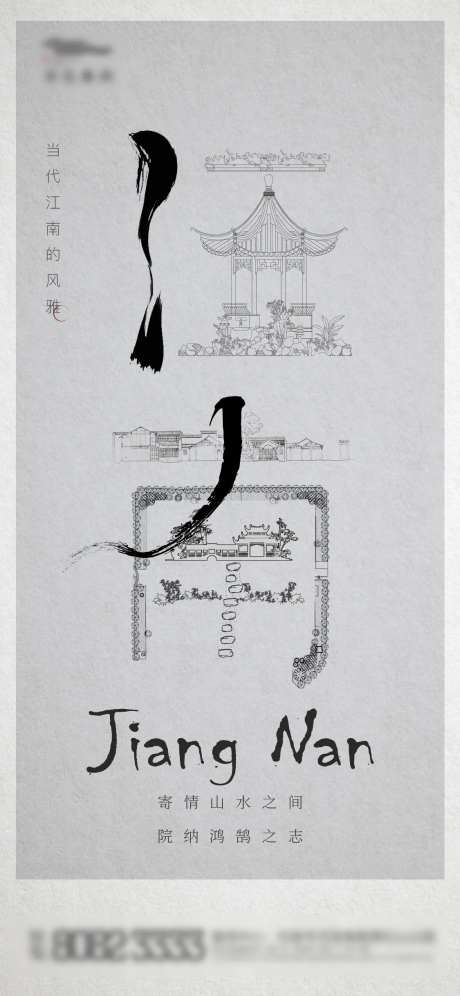 当代江南的风雅
江南
Jiang Nan
寄情山水之间
院纳鸿鹄之志
8082 3333